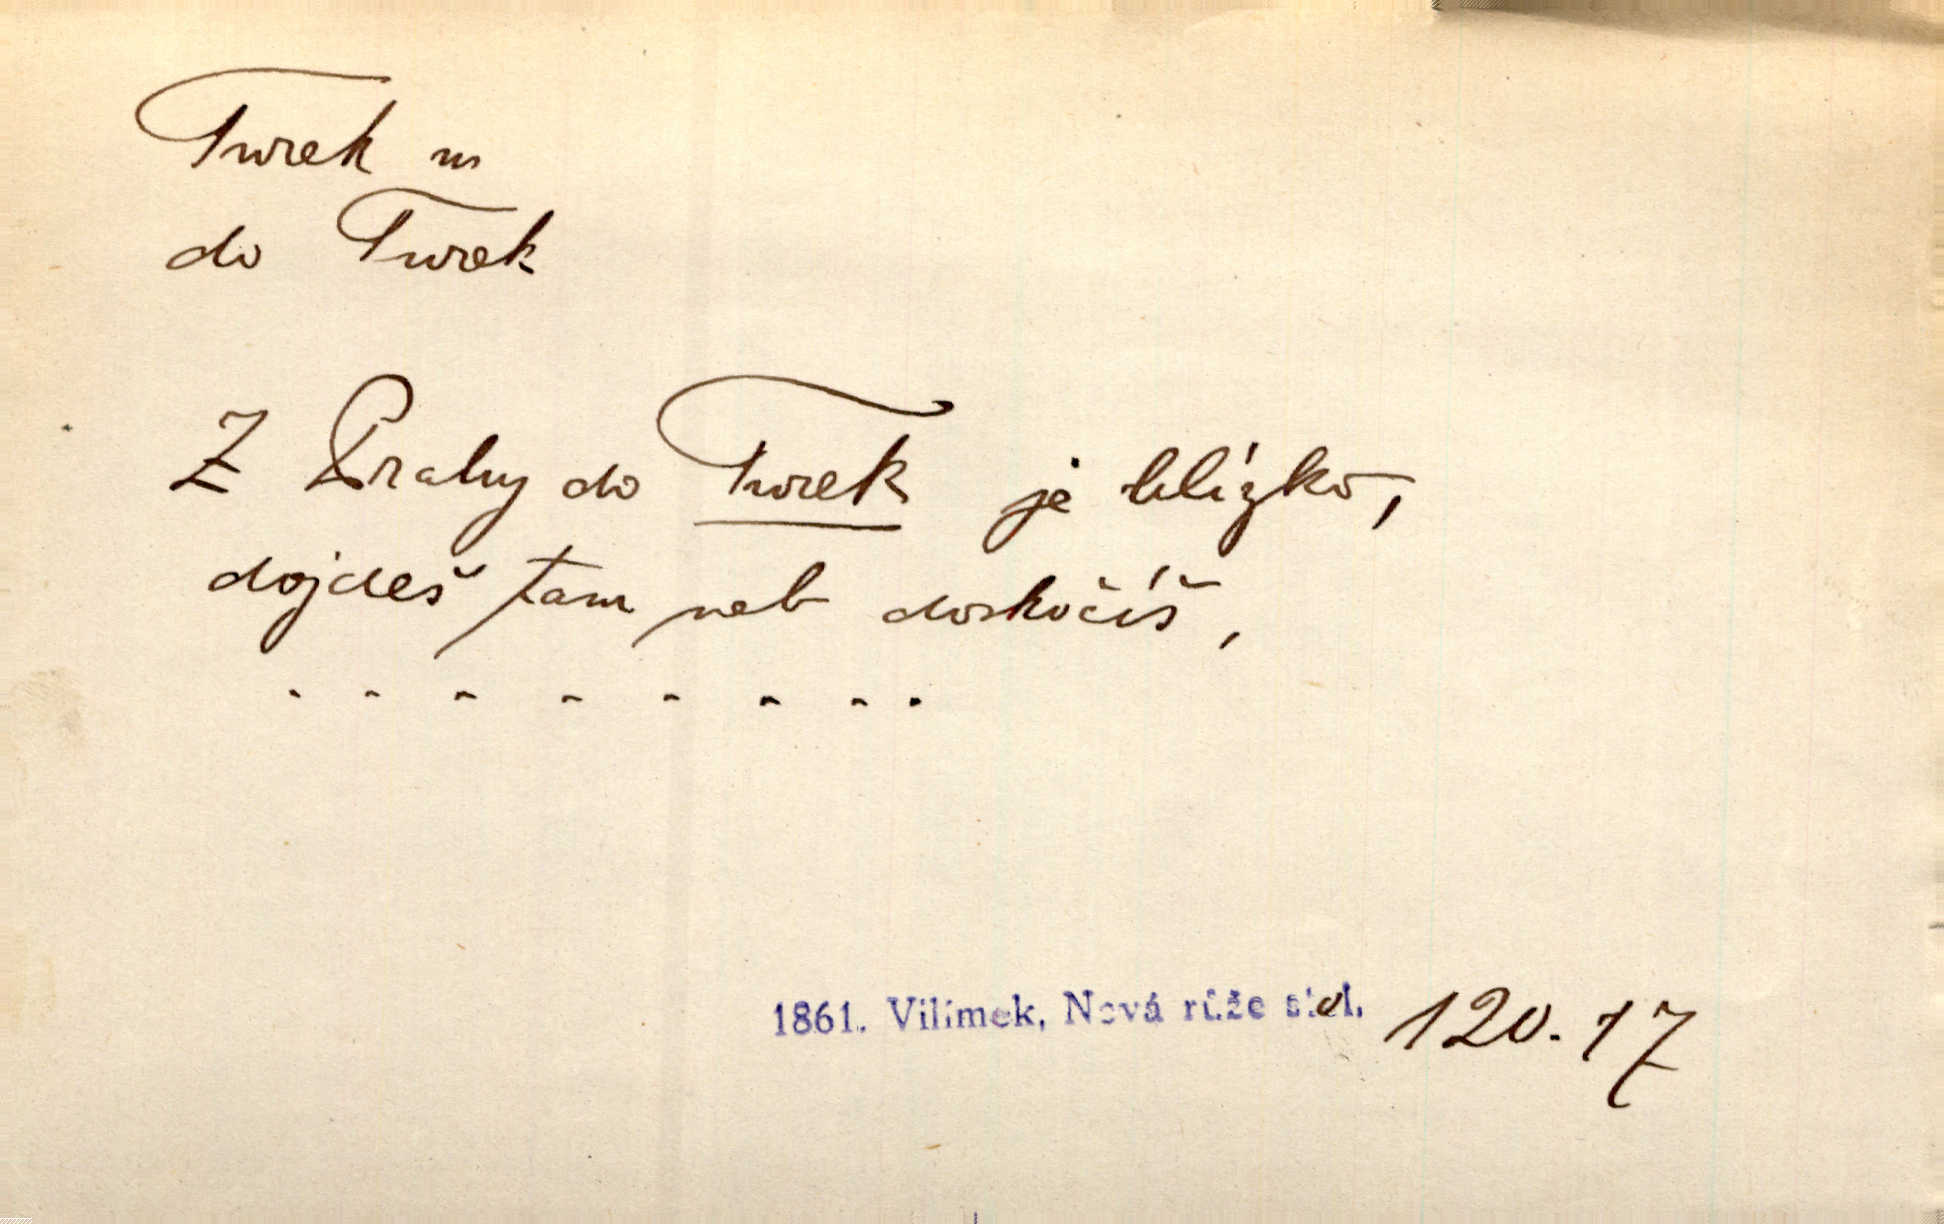 Turek m
do Turek
Z Prahy do Turek je blízko,
dojdeš tam neb doskočíš,
. . . . . . . .
1861. Vilímek, Nová růže stol. 120.17